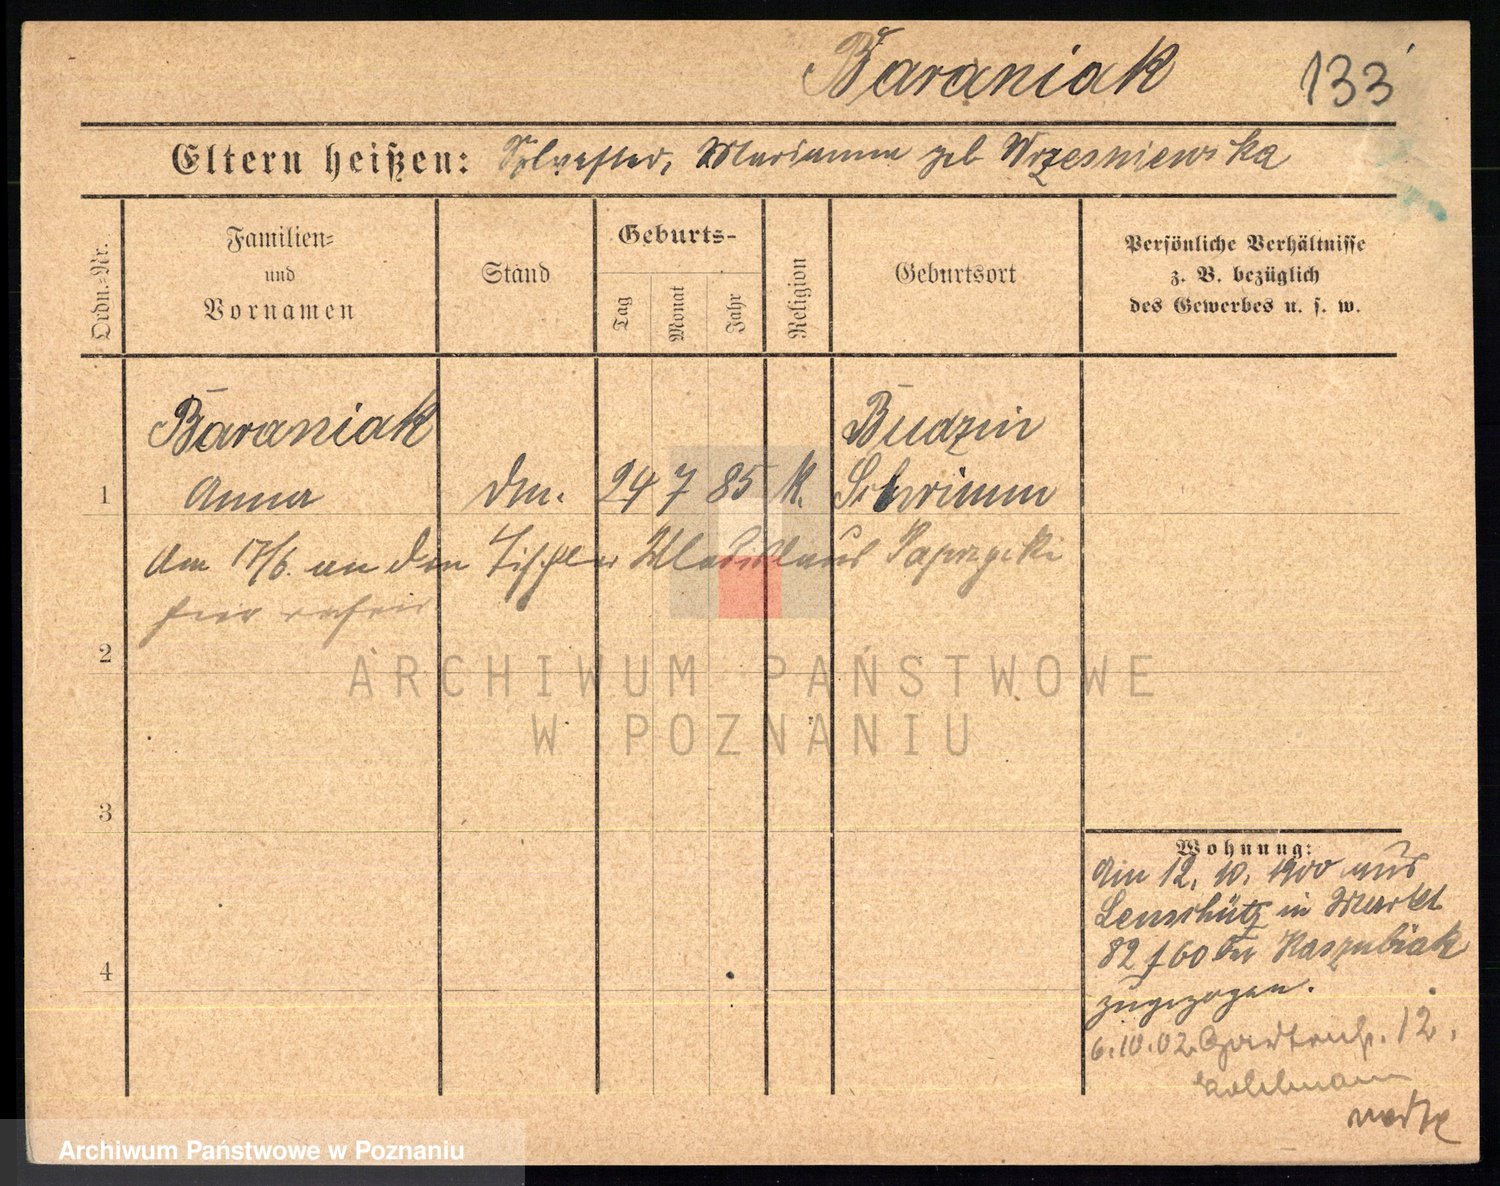 Baraniak 133
Eltern heißen: Sylvester, Marianna geb Wrzesniewska
Ordn.-Nr.
Familien-
und
Vornamen
Stand
Geburts-
Tag
Monat
Jahr
Religion
Geburtsort
Persönliche Verhältnisse
z. B. bezüglich
des Gewerbes u. s. w.
Baraniak Budzin
1 Anna 24 7 85 K. Schrimm
Am 17/6. an den Tischler Wladislaus Paprzycki
hier
2
3
4
Wohnung:
Am 12. 10. 1900 aus
in Markt
82 bei Kaszubiak
zugezogen.
6.10.02. Gartenstr. 12.
ARCHIWUM PAŃSTWOWE
W POZNANIU
Archiwum Państwowe w Poznaniu